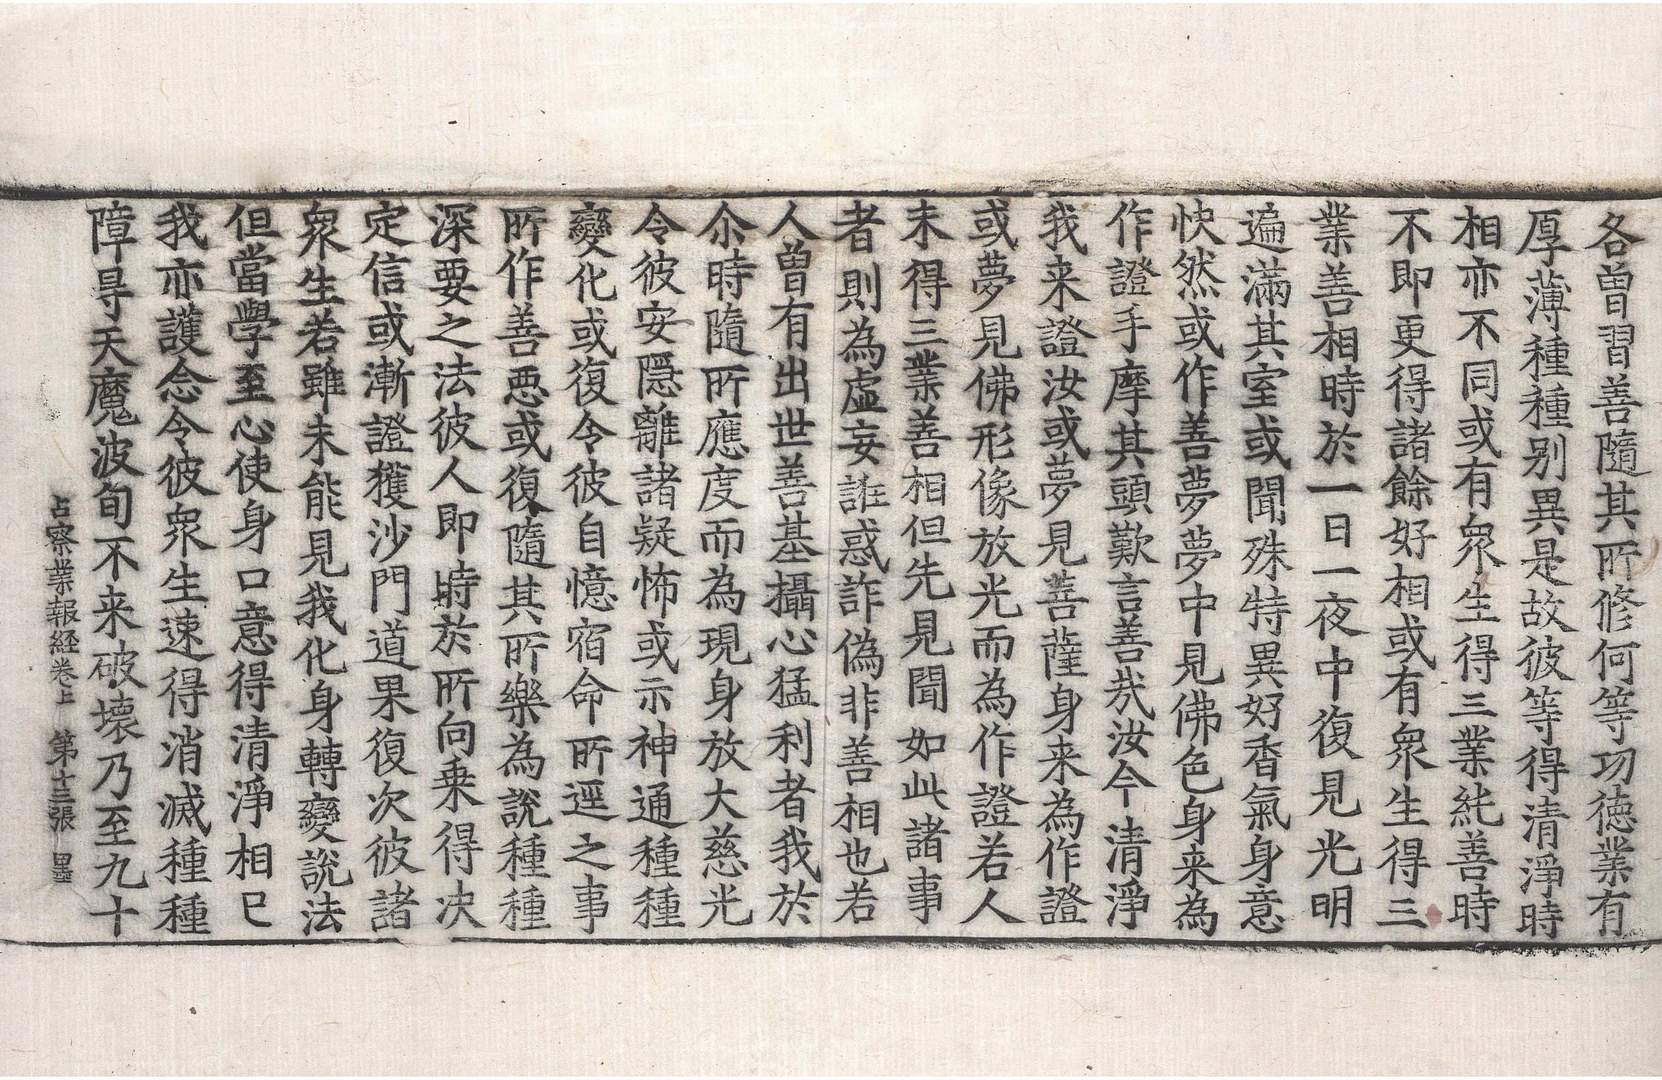 各曽習善隨其所修何等功德業有
厚薄種種别異是故彼等得清淨時
相亦不同或有衆生得三業純善時
不即更得諸餘好相或有衆生得三
業善相時於一日一夜中復見光明
遍滿其室或聞殊特異好香氣身意
快然或作善夢夢中見佛色身来為
作證手摩其頭歎言善哉汝今清淨
我来證汝或夢見菩薩身来為作證
或夢見佛形像放光而為作證若人
未得三業善相但先見聞如此諸事
者則為虛妄誑惑詐偽非善相也若
人曽有出世善基攝心猛利者我於
尒時隨所應度而為現身放大慈光
令彼安隱離諸疑怖或示神通種種
變化或復令彼自憶宿命所逕之事
所作善惡或復隨其所樂為說種種
深要之法彼人即時於所向乗得决
定信或漸證獲沙門道果復次彼諸
衆生若雖未能見我化身轉變說法
但當學至心使身口意得清淨相已
我亦護念令彼衆生速得消滅種種
障㝵天魔波旬不来破壞乃至九十
占察業報経卷上　第十三張　墨